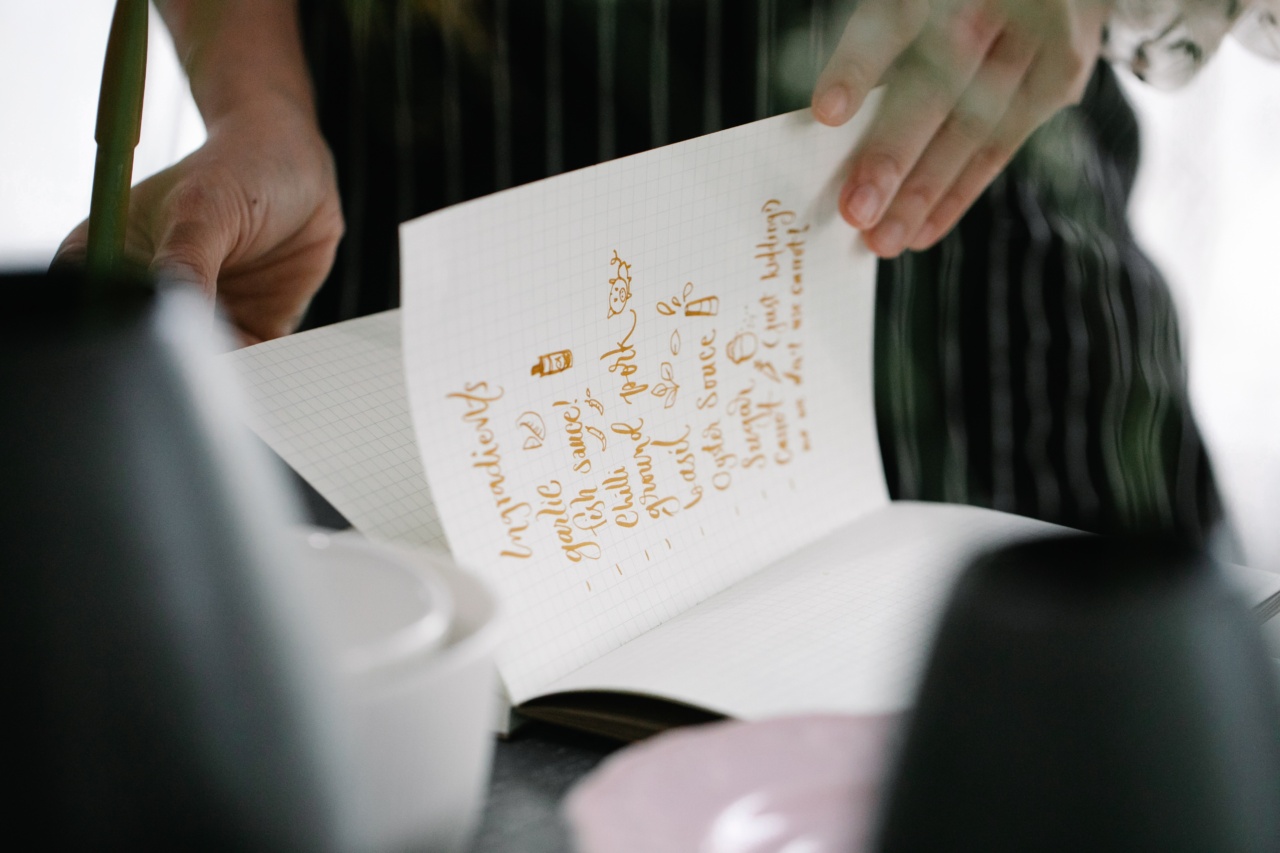 Ingradients
garlic
- fish sauce!
- Chilli
- ground pork
- basil
- Oyster Souce
- Sugar
- Carrot (just kidding)
we don't use carrot!